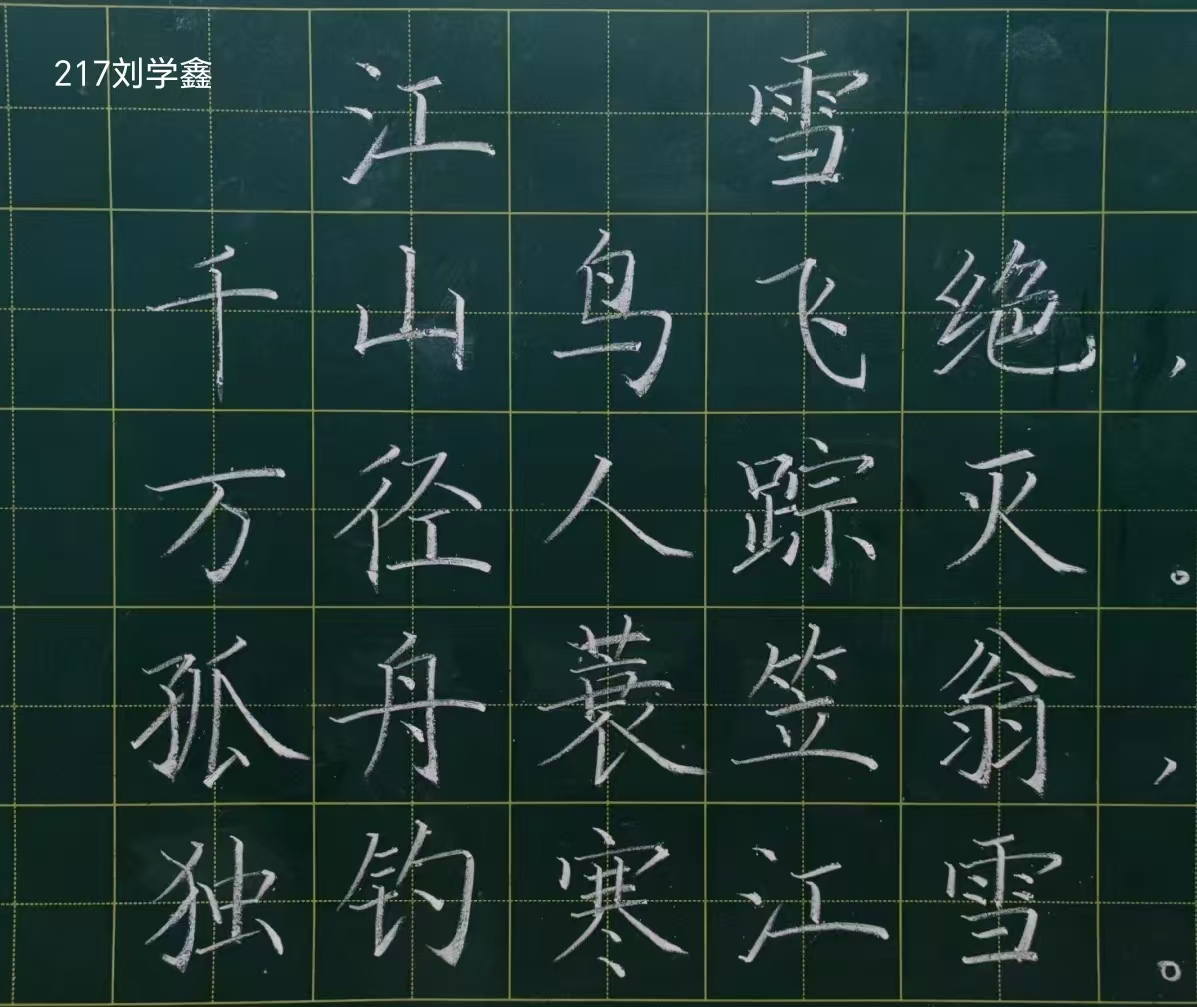 217刘学鑫
江雪
千山鸟飞绝，
万径人踪灭。
孤舟蓑笠翁，
独钓寒江雪。